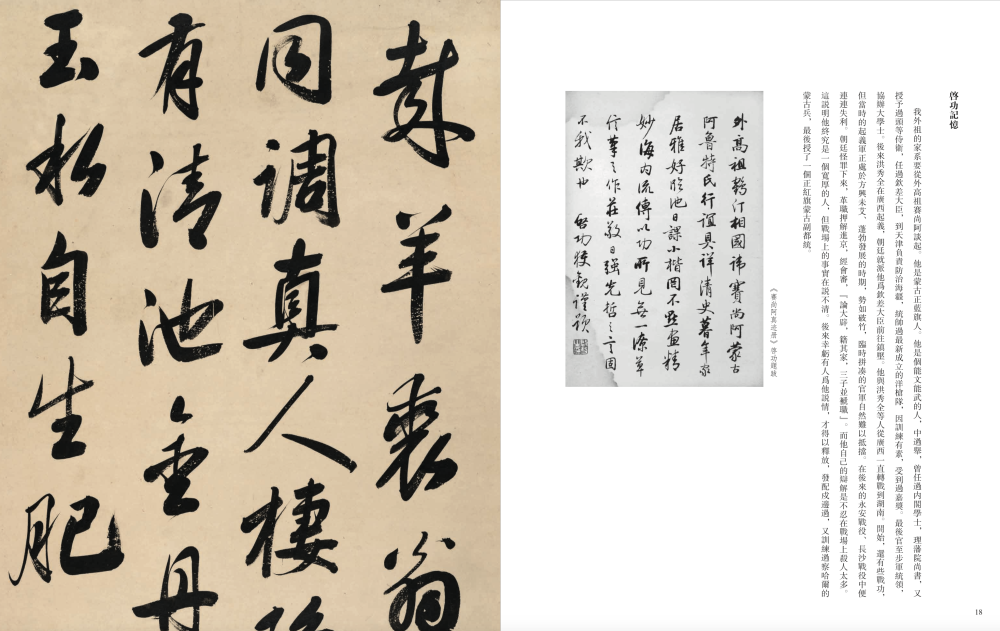 啓功記憶
我外祖的家系要從外高祖賽尚阿談起。他是蒙古正藍旗人。他是個能文能武的人，中過舉，曾任過内閣學士，理藩院尚書，又
授予過頭等侍衛，任過欽差大臣，到天津負責防治海疆，統帥過最新成立的洋槍隊，因訓練有素，受到過嘉獎。最後官至步軍統領，
協辦大學士。後來洪秀全在廣西起義，朝廷就派他爲欽差大臣前往鎮壓。他與洪秀全等人從廣西一直轉戰到湖南。開始，還有些戰功，
但當時的起義軍正處於方興未艾、蓬勃發展的時期，勢如破竹，臨時拼湊的官軍自然難以抵擋。在後來的永安戰役、長沙戰役中便
連連失利。朝廷怪罪下來，革職押解進京，經會審，『論大辟，籍其家，三子並褫職』。而他自己的辯解是不忍在戰場上殺人太多。
這説明他終究是一個寬厚的人，但戰場上的事實在説不清。後來幸虧有人爲他説情，才得以釋放，發配戍邊過，又訓練過察哈爾的
蒙古兵，最後授了一個正紅旗蒙古副都統。
《賽尚阿真迹册》啓功題跋
外高祖鶴汀相國諱賽尚阿蒙古
阿魯特氏行誼具詳清史暮年家
居雅好臨池日課小楷罔不點畫精
妙海内流傳以功所見無一潦草
行筆之作莊敬日強先哲之言固
不我欺也 啓功獲觀謹題
18
羊裘翁
同調真人棲
有清池金丹
玉松自生肥